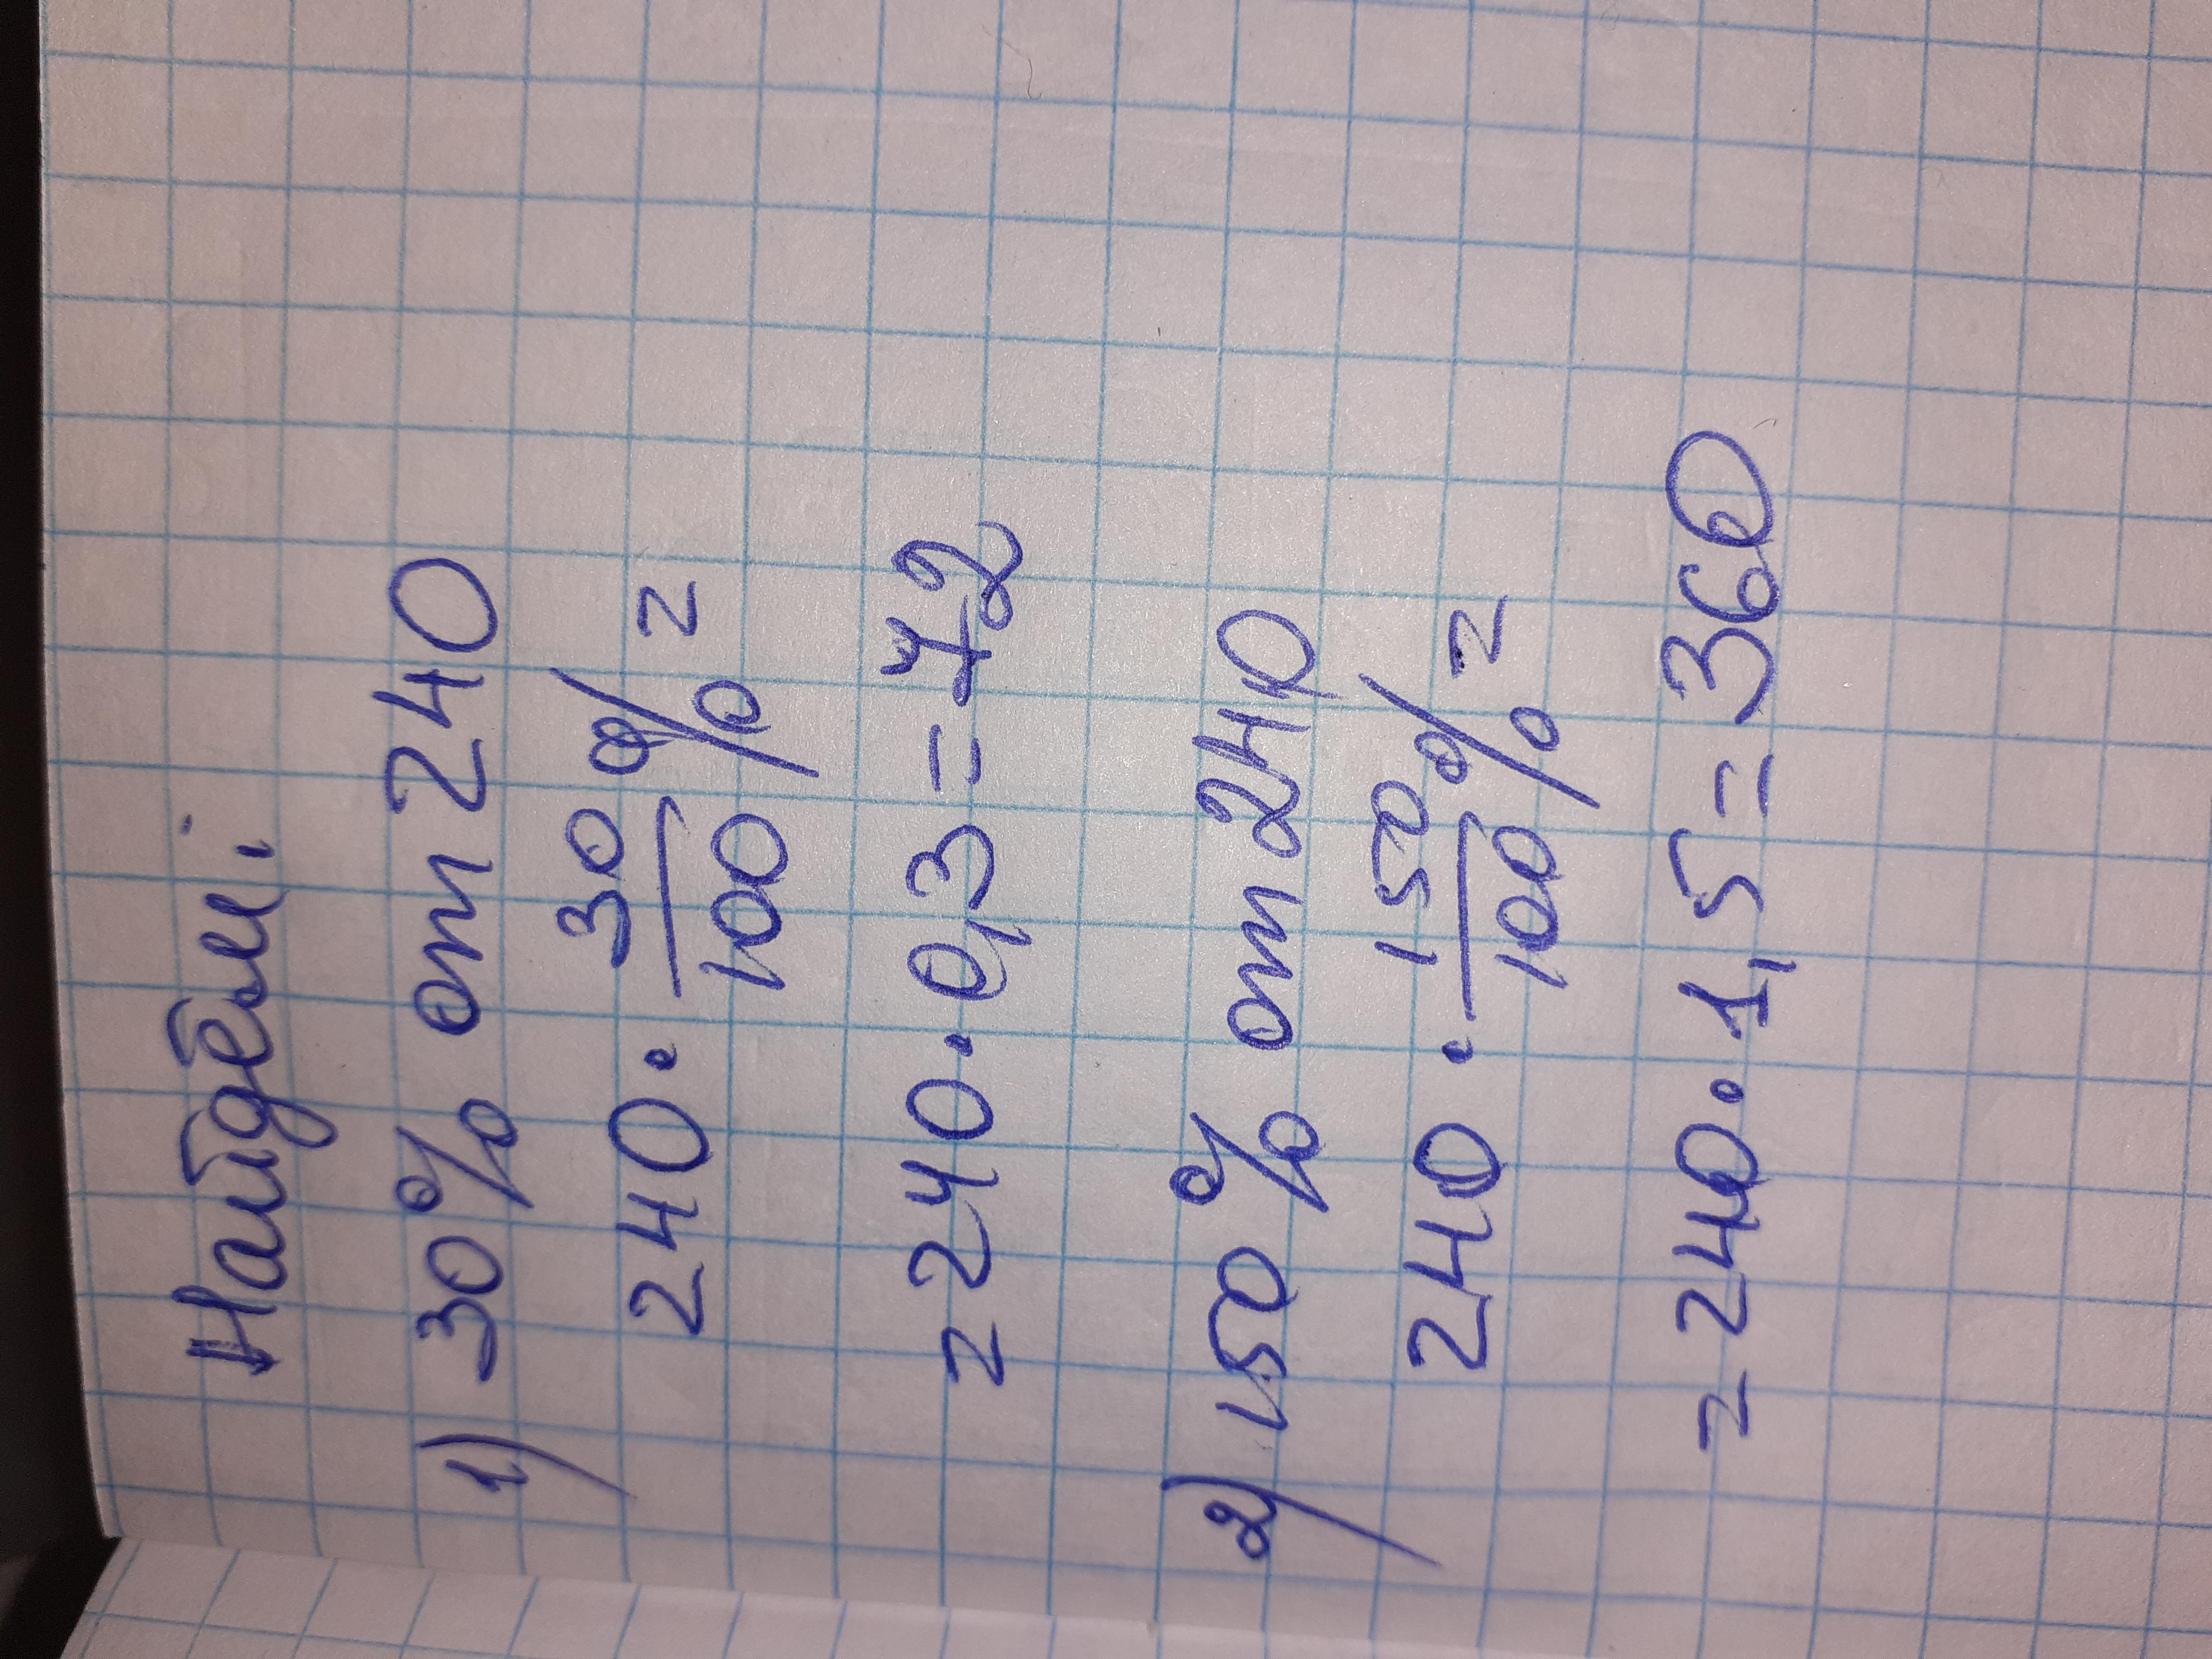 Найдём:
1) 30% от 240
240 · 30% / 100% =
= 240 · 0,3 = 72
2) 150% от 240
240 · 150% / 100% =
= 240 · 1,5 = 360